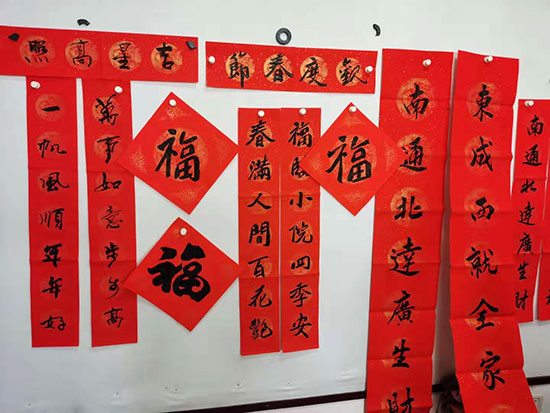 吉星高照
萬事如意步步高
一帆風順年年好
福
福
歡度春節
福臨小院四季安
春滿人間百花艷
福
東成西就全家
南通北達廣生財
南通北達廣生財